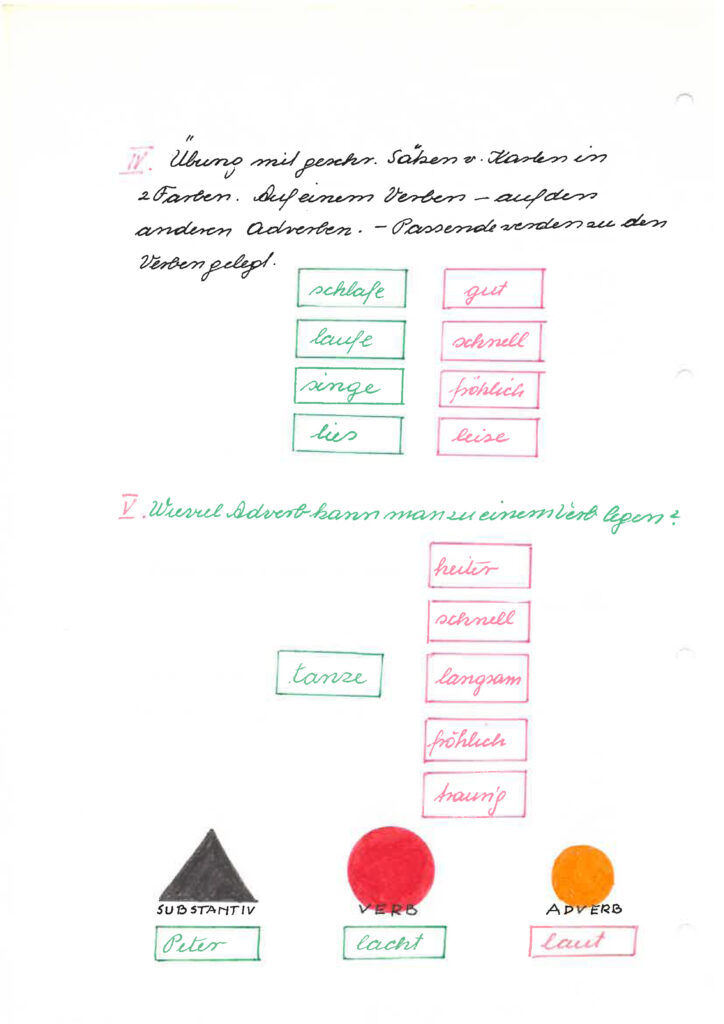 IV. Übung mit geschr. Sätzen v. Karten in
2 Farben. Auf einem Verben – auf den
anderen Adverben. – Passende werden zu den
Verben gelegt.
schlafe gut
laufe schnell
singe fröhlich
lies leise
V. Wieviel Adverb kann man zu einem Verb legen?
heiter
schnell
tanze langsam
fröhlich
traurig
SUBSTANTIV VERB ADVERB
Peter lacht laut